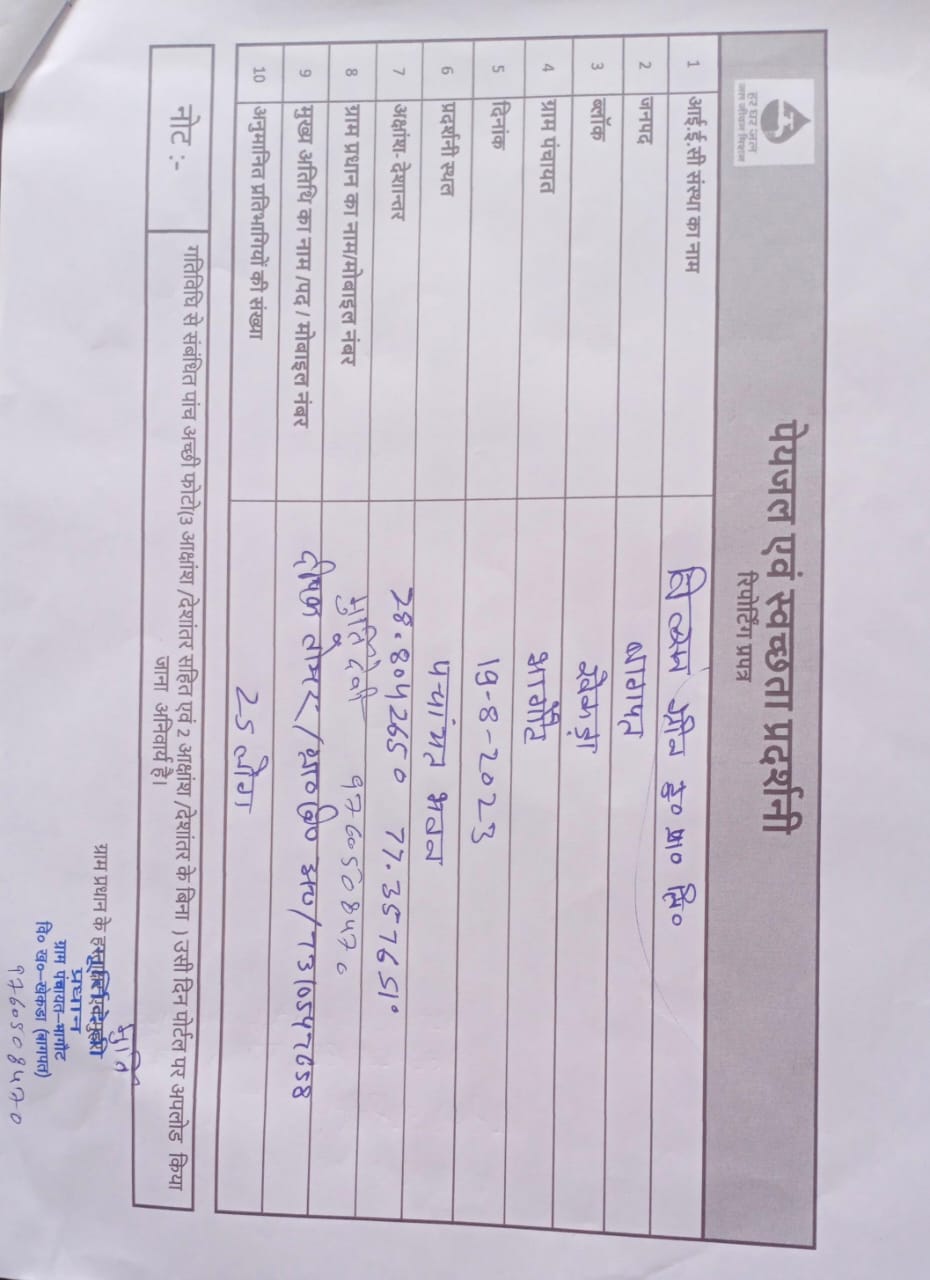 हर घर जल
जल जीवन मिशन
पेयजल एवं स्वच्छता प्रदर्शनी
रिपोर्टिंग प्रपत्र
1 आई.ई.सी संस्था का नाम ग्रीन इ० प्रा० लि०
2 जनपद बागपत
3 ब्लॉक खेकड़ा
4 ग्राम पंचायत
5 दिनांक 19-8-2023
6 प्रदर्शनी स्थल पंचायत भवन
7 अक्षांश-देशान्तर 28.8042650 77.357651°
8 ग्राम प्रधान का नाम/मोबाइल नंबर मुर्ति देवी 9760508470
9 मुख्य अतिथि का नाम /पद / मोबाइल नंबर दीपक तोमर/
10 अनुमानित प्रतिभागियों की संख्या 25 लोग
नोट :- गतिविधि से संबंधित पांच अच्छी फोटो(3 आक्षांश /देशांतर सहित एवं 2 आक्षांश /देशांतर के बिना ) उसी दिन पोर्टल पर अपलोड किया
जाना अनिवार्य है।
मुर्ति
ग्राम प्रधान के
प्रधान
ग्राम पंचायत-भागौट
वि० ख०-खेकडा (बागपत)
9760508470